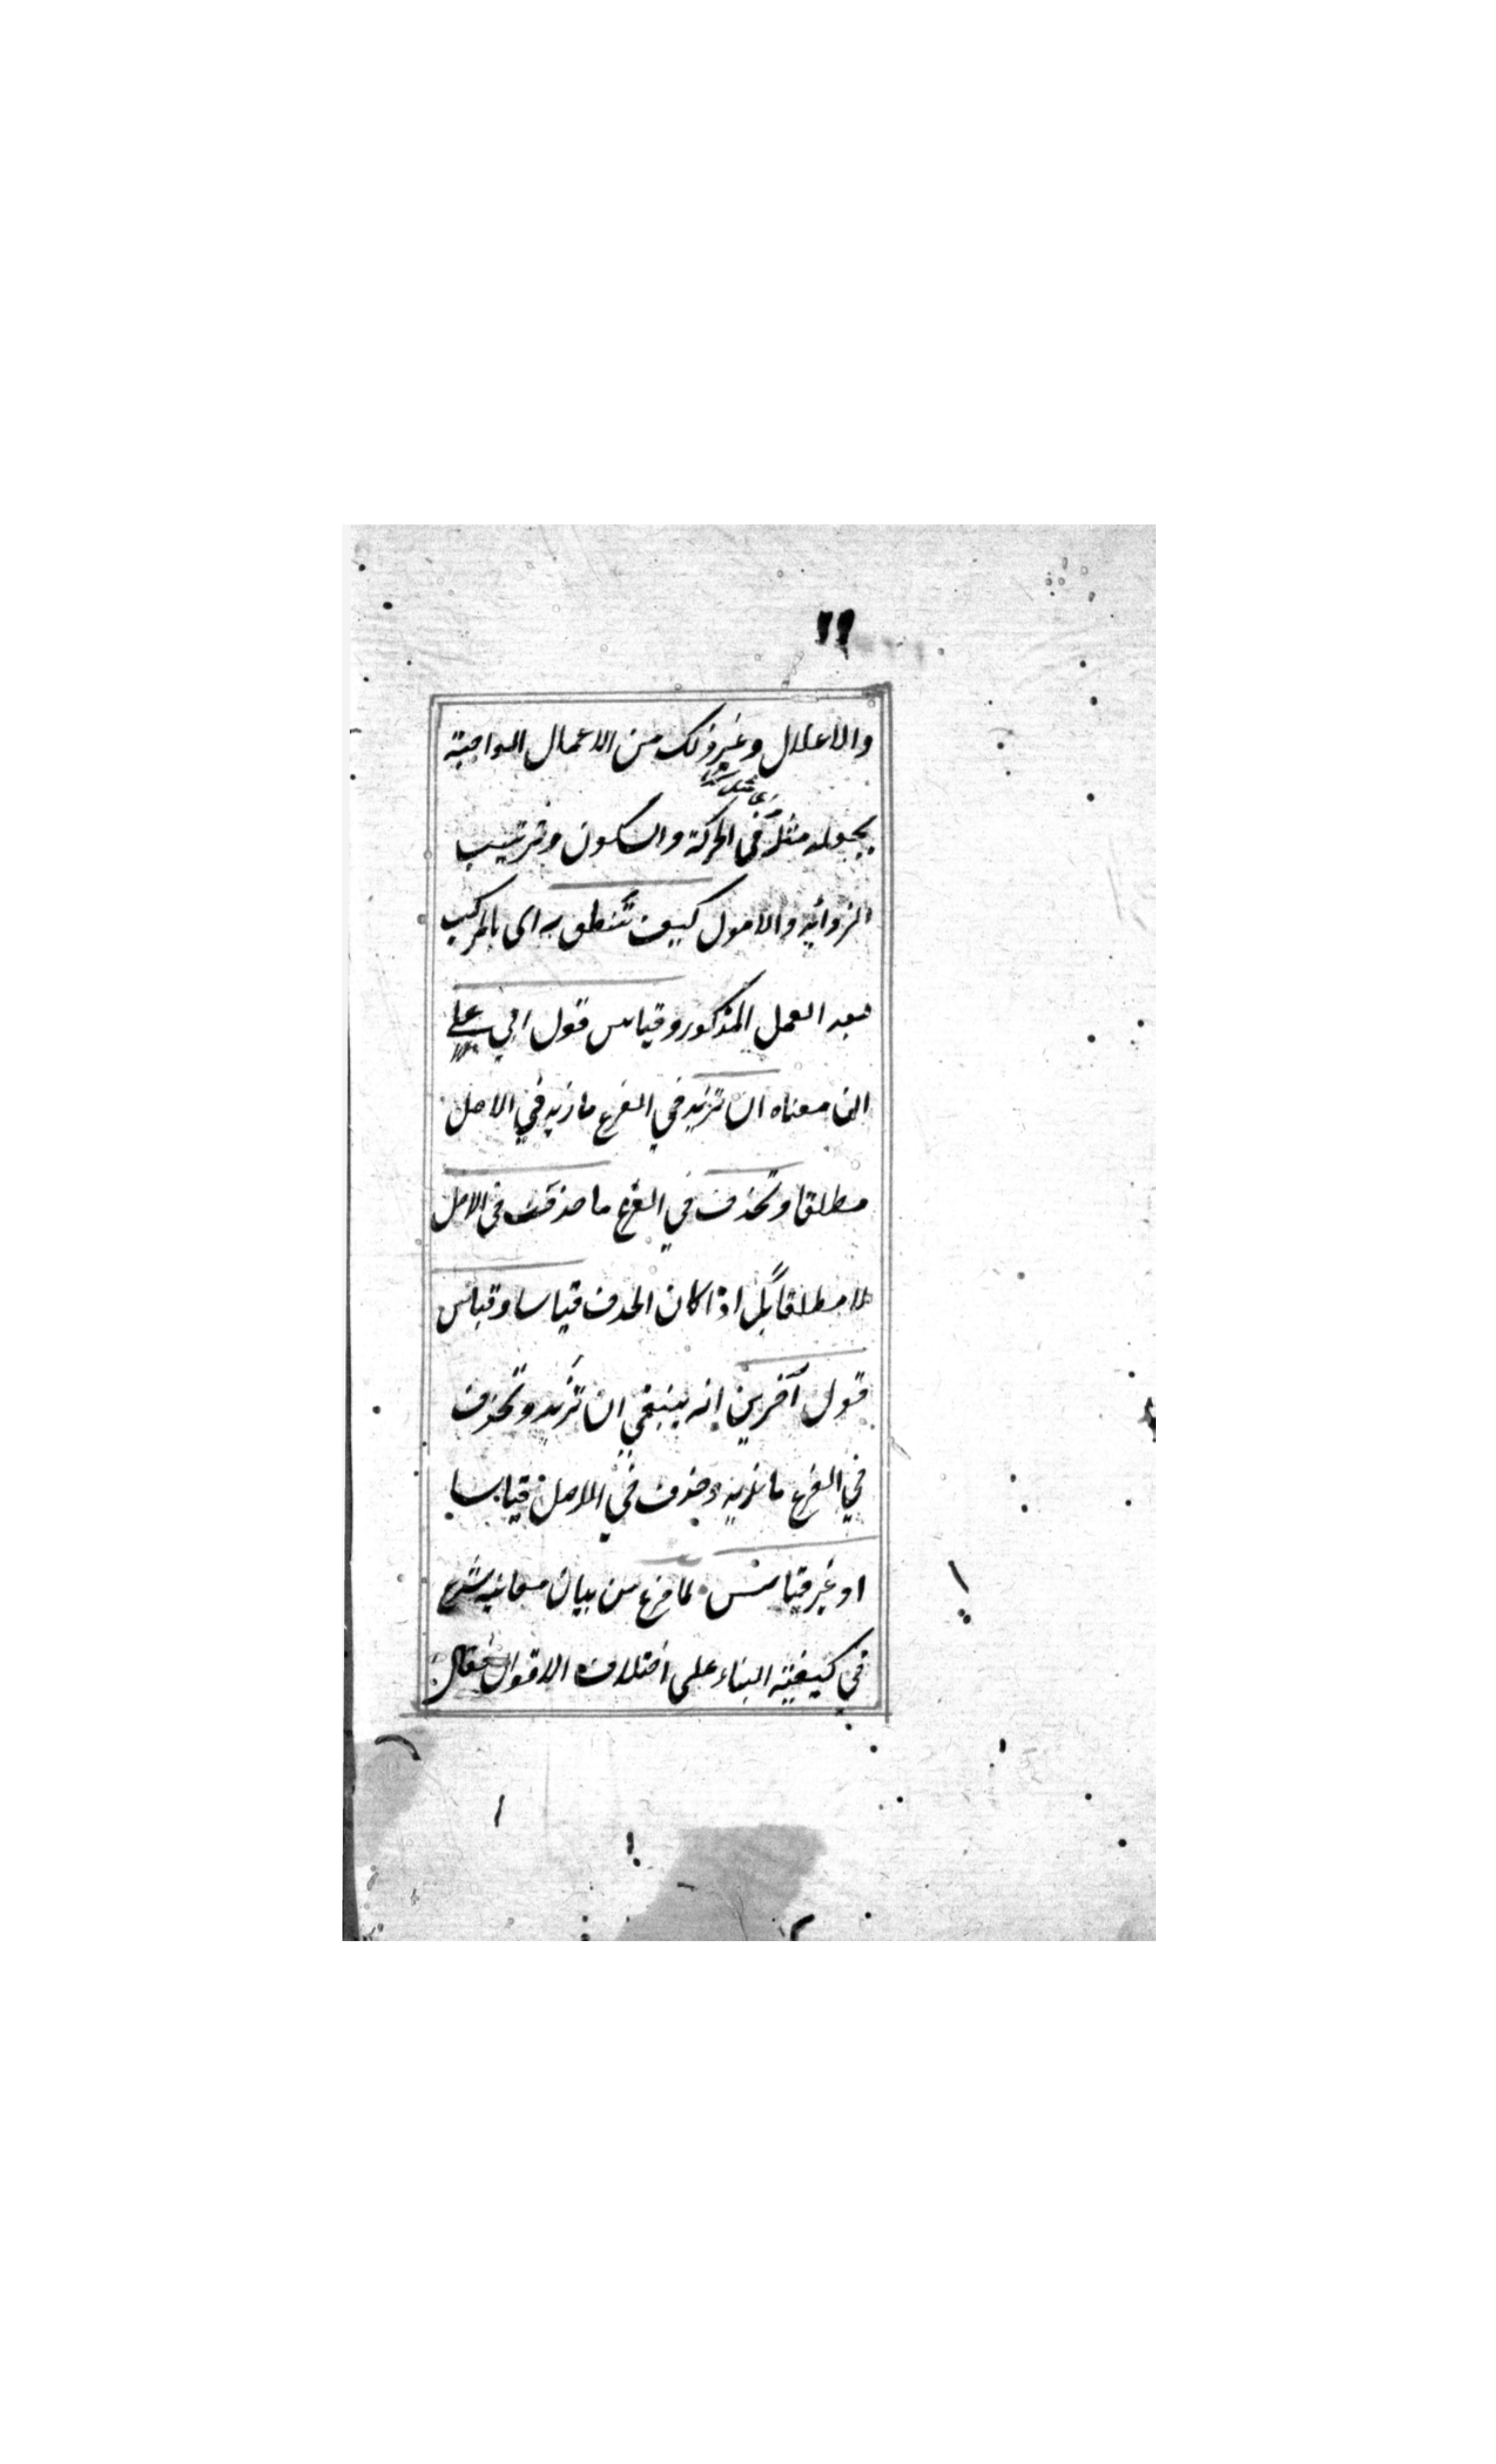 ١١
والاعلال وغير ذلك من الاعمال الواجبة
بجعله مثله في الحركة والسكون وترتيب
الزوائد والاصول كيف تنطق به اى بالمركب
بعد العمل المذكور وقياس قول ابي علي
ان معناه ان تزيد في الفرع ما زيد في الاصل
مطلقا وتحذف في الفرع ما حذفت في الاصل
لا مطلقا بل اذا كان الحذف قياسا وقياس
قول آخرين انه ينبغي ان تزيد وتحذف
في الفرع ما زيد وحذف في الاصل قياسا
او غير قياس لما فرغ من بيان معانيه شرع
في كيفية البناء على اختلاف الاقوال فقال